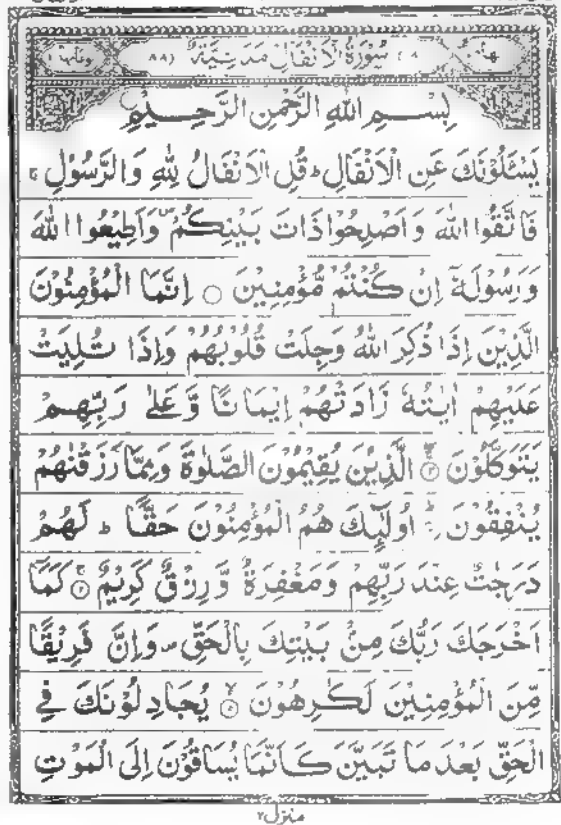 سُوْرَةُ الْاَنْفَالِ مَدَنِيَّةٌ (٨٨)
بِسْمِ اللهِ الرَّحْمٰنِ الرَّحِيْمِ
يَسْـَٔلُوْنَكَ عَنِ الْاَنْفَالِ ؕ قُلِ الْاَنْفَالُ لِلّٰهِ وَالرَّسُوْلِ ۚ
فَاتَّقُوا اللهَ وَاَصْلِحُوْا ذَاتَ بَيْنِكُمْ ۪ وَاَطِيْعُوا اللهَ
وَرَسُوْلَهٗۤ اِنْ كُنْتُمْ مُّؤْمِنِيْنَ ۝ اِنَّمَا الْمُؤْمِنُوْنَ
الَّذِيْنَ اِذَا ذُكِرَ اللهُ وَجِلَتْ قُلُوْبُهُمْ وَاِذَا تُلِيَتْ
عَلَيْهِمْ اٰيٰتُهٗ زَادَتْهُمْ اِيْمَانًا وَّعَلٰى رَبِّهِمْ
يَتَوَكَّلُوْنَ ۝ الَّذِيْنَ يُقِيْمُوْنَ الصَّلٰوةَ وَمِمَّا رَزَقْنٰهُمْ
يُنْفِقُوْنَ ؕ اُولٰٓئِكَ هُمُ الْمُؤْمِنُوْنَ حَقًّا ؕ لَهُمْ
دَرَجٰتٌ عِنْدَ رَبِّهِمْ وَمَغْفِرَةٌ وَّرِزْقٌ كَرِيْمٌ ۝ كَمَاۤ
اَخْرَجَكَ رَبُّكَ مِنْۢ بَيْتِكَ بِالْحَقِّ ۪ وَاِنَّ فَرِيْقًا
مِّنَ الْمُؤْمِنِيْنَ لَكٰرِهُوْنَ ۝ يُجَادِلُوْنَكَ فِى
الْحَقِّ بَعْدَ مَا تَبَيَّنَ كَاَنَّمَا يُسَاقُوْنَ اِلَى الْمَوْتِ
منزل٢